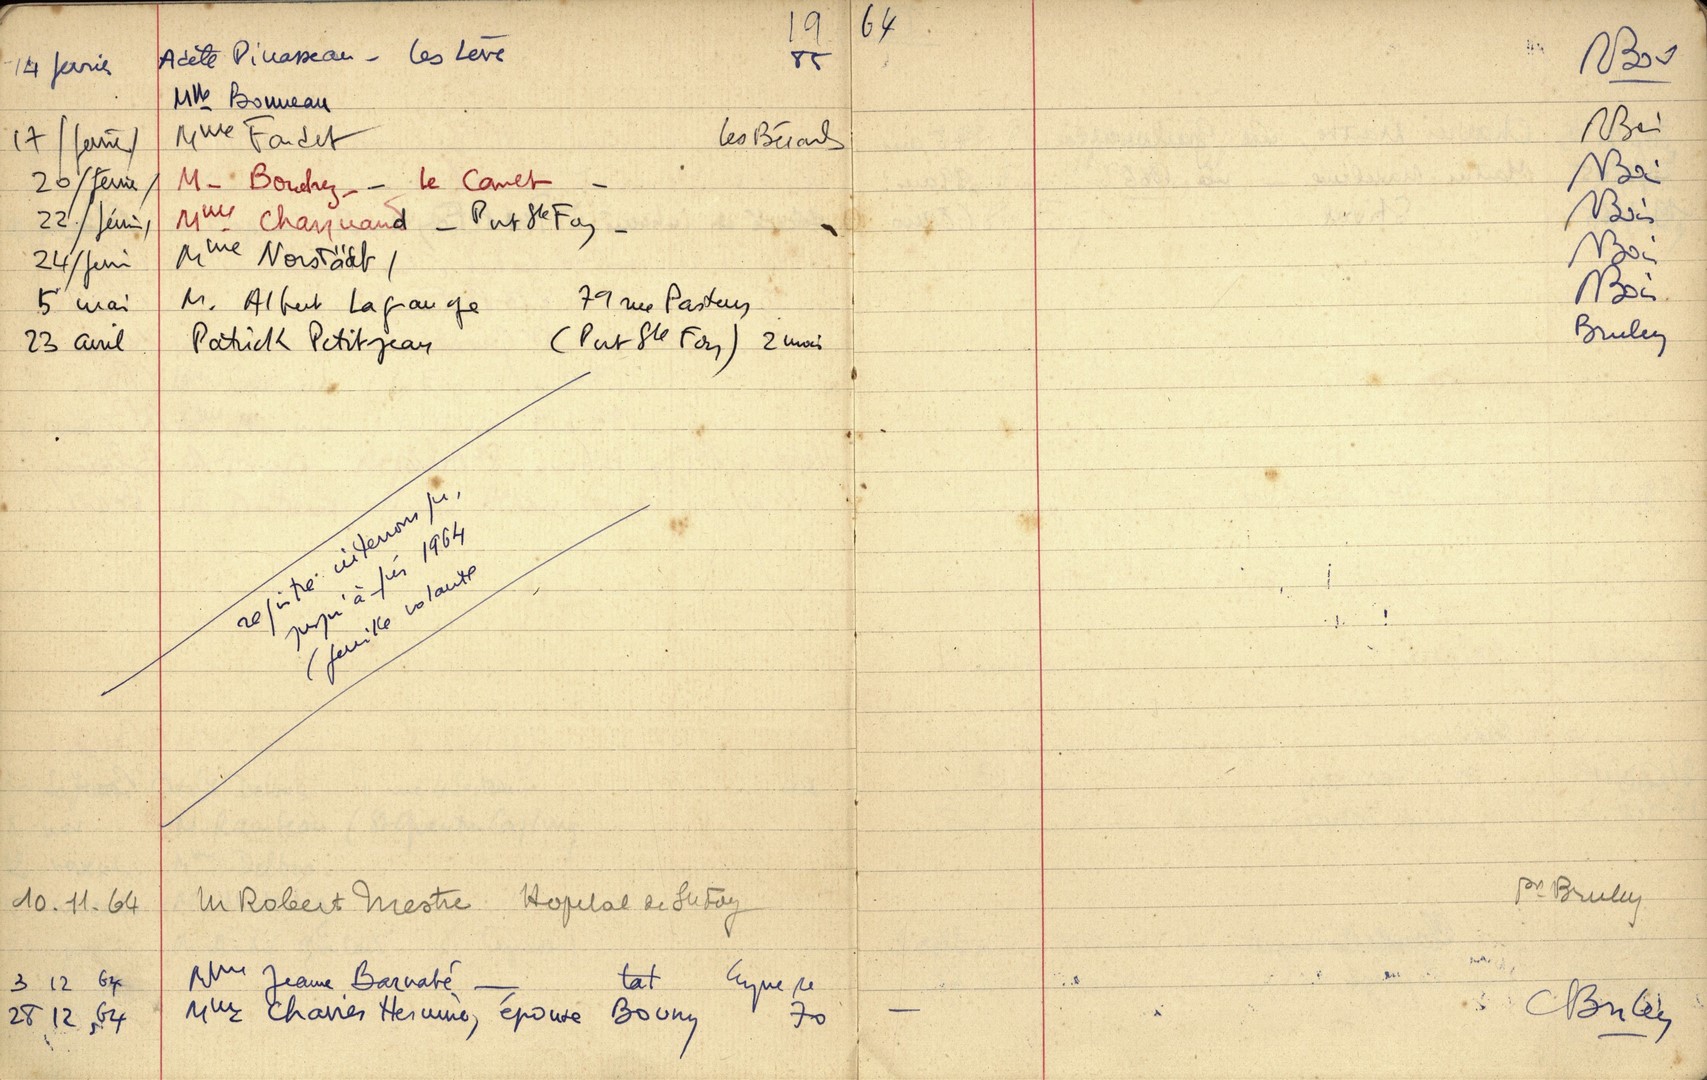 19 64
14 février Adèle Pinasseau - Les Lève 85 NBois
Mlle Bonneau
17 /février/ Mme Faudet Les Bérards NBois
20/février/ M - Boudrez - - le Canet - NBois
22/février/ Mme Charruaud - Port Ste Foy - NBois
24/février Mme Norstädt / NBois
5 mai M. Albert Lagrange 79 rue Pasteur NBois
23 avril Patrick Petitjean (Port Ste Foy) 2 mois Bruley
registre interrompu,
jusqu'à fin 1964
(feuille volante
10.11.64 M Robert Mestre Hopital de Ste Foy pr Bruley
3 12 64 Mme Jeanne Barnabé —
28 12 64 Mme Chariès Hermine, épouse Bouny 70 — CBruley